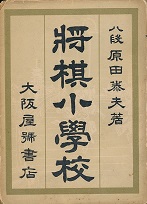 八段原田泰夫著
將棋小學校
大阪屋號書店